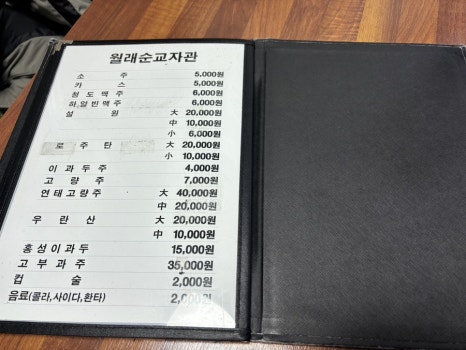 월래순교자관
소 주 5,000원
카 스 5,000원
청 도 맥 주 6,000원
하얼빈맥주 6,000원
설 원 大 20,000원
中 10,000원
小 6,000원
로 주 단 大 20,000원
小 10,000원
이 과 두 주 4,000원
고 량 주 7,000원
연태고량주 大 40,000원
中 20,000원
우 란 산 大 20,000원
中 10,000원
홍성이과두 15,000원
고 부 과 주 35,000원
컵 술 2,000원
음료(콜라,사이다,환타) 2,000원